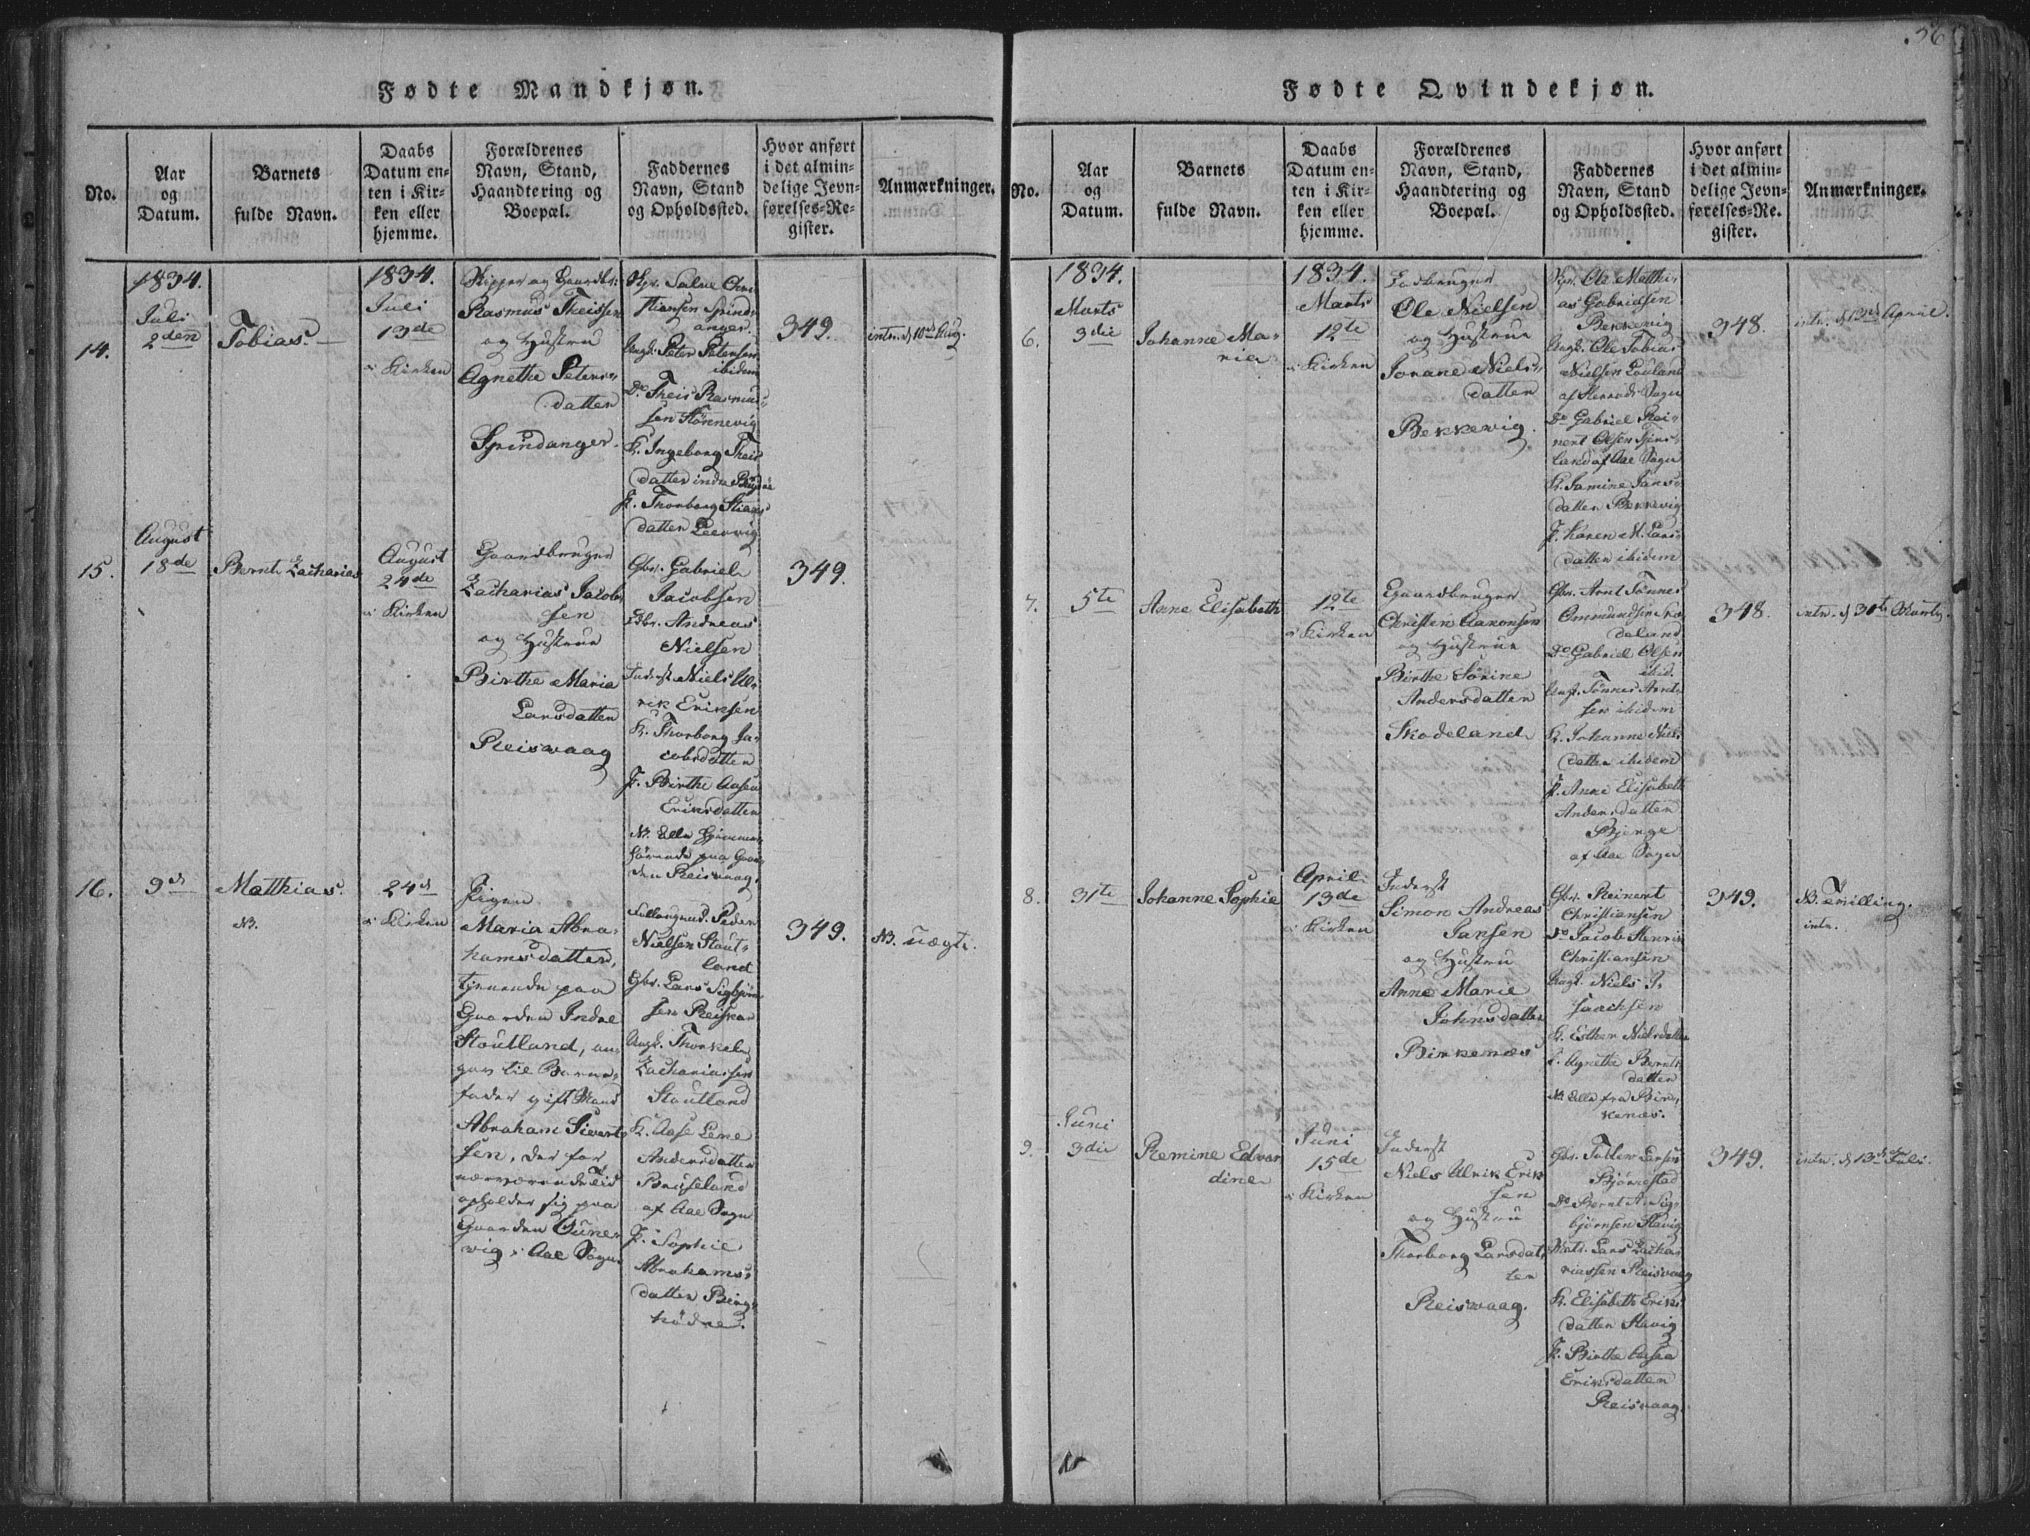 56
Fødte Mandkjøn.
No.
Aar
og
Datum.
Barnets
fulde Navn.
Daabs
Datum en-
ten i Kir-
ken eller
hjemme.
Forældrenes
Navn, Stand,
Haandtering og
Boepæl.
Faddernes
Navn, Stand
og Opholdssted.
Hvor anført
i det almin-
delige Jevn-
førelses-Re-
gister.
Anmærkninger.
14.
1834.
Juli
2den
Tobias.
1834.
Juli
13de
i Kirken
Skipper og Gaardbr.
Rasmus Theissen
og Hustru
Agnethe Peters-
datter
Spindanger.
Salve Chri
stiansen Spind-
anger.
Ungk. Peter Petersen
ibidem
Do Theis Rasmus-
sen Tønnevig
K. Ingeborg Theis
datter indre
P. Thorborg Stians
datter Leervig
349.
intr. d 10de Aug.
15.
August
18de
Bernt Zacharias
August
24de
i Kirken
Gaardbruger
Zacharias Jacob-
sen
og Hustrue
Birthe Maria
Larsdatter
Reisvaag
Gbr. Gabriel
Jacobsen
Gbr. Andreas
Nielsen
Inderst Niels Ul-
rik Eriksen
K. Thorborg Ja-
cobsdatter
P. Birthe Aasea
Eriksdatter
NB. Alle hjemme-
hørende paa Gaar-
den Reisvaag.
349.
16.
9de
Matthias.
NB.
24de
i Kirken
Pigen
Maria Abra-
hamsdatter,
tjenende paa
Gaarden Indre
Stoutland, an-
gav til Barne-
fader gift Mand
Abraham Sivert-
sen, der for
nærværende Tid
opholder sig paa
Gaarden
vig, Aae Sogn
Peder
Nielsen Stout-
land
Gbr. Lars Sigbjørn
sen
Ungk. Thorkel
Zachariassen
Stoutland
K. Aase Lene
Andersdatter
Bruseland
af Aae Sogn
P. Sophie
Abrahams-
datter Berg-
hødne.
349.
NB. uægte.
Fødte Qvindekjøn.
No.
Aar
og
Datum.
Barnets
fulde Navn.
Daabs
Datum en-
ten i Kir-
ken eller
hjemme.
Forældrenes
Navn, Stand,
Haandtering og
Boepæl.
Faddernes
Navn, Stand
og Opholdssted.
Hvor anført
i det almin-
delige Jevn-
førelses-Re-
gister.
Anmærkninger.
6.
1834.
Marts
3die
Johanne Ma-
rie
1834.
Marts
12te
i Kirken
Ole Nielsen
og Hustrue
Jorane Niels-
datter
Bekkevig.
Ole Matthi-
as Gabrielsen
Bekkevig
Ungk. Ole Tobias
Nielsen Louland
af Herrads Sogn
Do Gabriel Rei-
nert Olsen
land af Aae Sogn
K. Jamine Jans-
datter Bekkevig
P. Karen M. Lars-
datter ibidem
348.
intr. d 13de April.
7.
5te
Anne Elisabeth
12te
i Kirken
Gaardbruger
Christen Aaronsen
og Hustrue
Birthe Sorine
Andersdatter
Skodeland
Gbr. Arnt Tønnes
Ommundsen Sko-
deland
Do Gabriel Olsen
ibid.
Ungk. Tønnes Arnt-
sen ibidem
K. Johanne Niels
datter ibidem
P. Anne Elisabeth
Andersdatter
Bjerge
af Aae Sogn
348.
intr. d 31te Marts.
8.
31te
Johanne Sophie
April
13de
i Kirken
Inderst
Simon Andreas
Jansen
og Hustru
Anne Marie
Johnsdatter
Birkenæs
Gbr. Reinert
Christiansen
Do Jacob Henrik
Christiansen
Ungk. Niels I-
saachsen
K. Esther Nielsdatter
P. Agnethe Bernts
datter
NB. Alle fra Bir-
kenæs.
349.
NB. Tvilling.
intr.
9.
Juni
3die
Remine Edvar
dine
Juni
15de
i Kirken
Inderst
Niels Ulrik Erik
sen
og Hustru
Thorborg Larsdat-
ter
Reisvaag.
Gbr. Tollev Larsen
Bjørnestad
Do Bernt A. Sig-
bjørnsen Stavig
Lars Zacha-
riassen Reisvaag
K. Elisabeth Eriks
datter Stavig
P. Birthe Aasea
Eriksdatter
Reisvaag.
349.
intr. d 13de Juli.